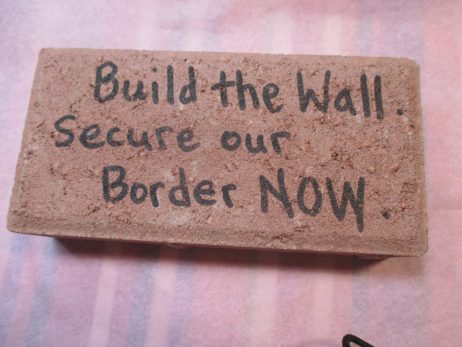 Build the Wall.
Secure our
Border NOW.